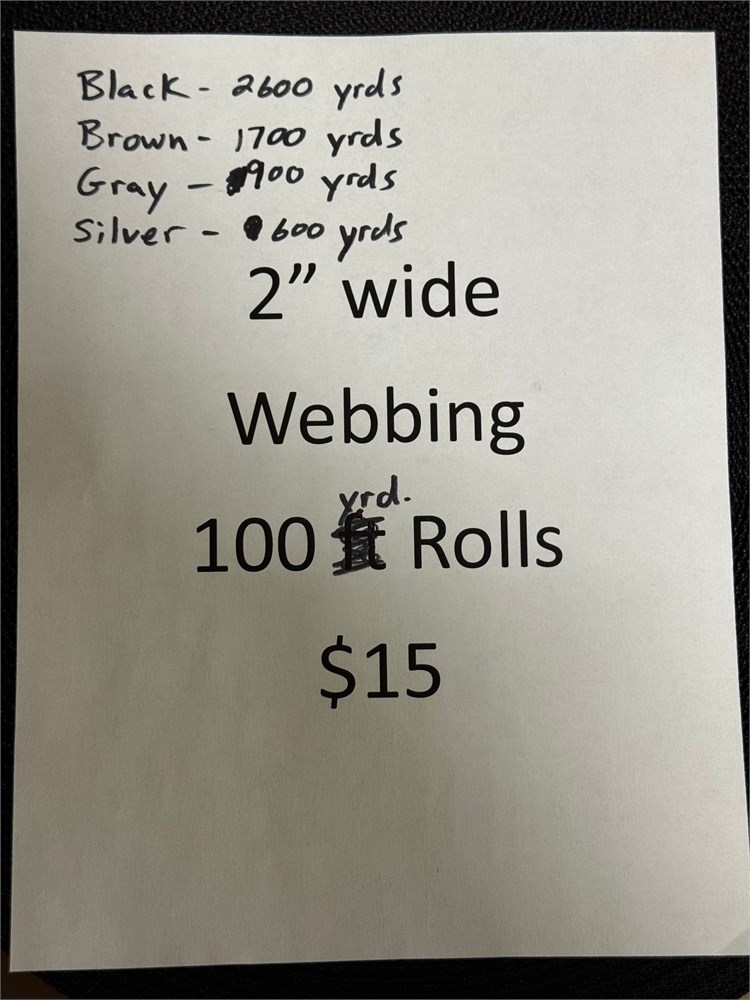 Black - 2600 yrds
Brown - 1700 yrds
Gray - 900 yrds
Silver - 600 yrds
2” wide
Webbing
yrd.
100 ft Rolls
$15